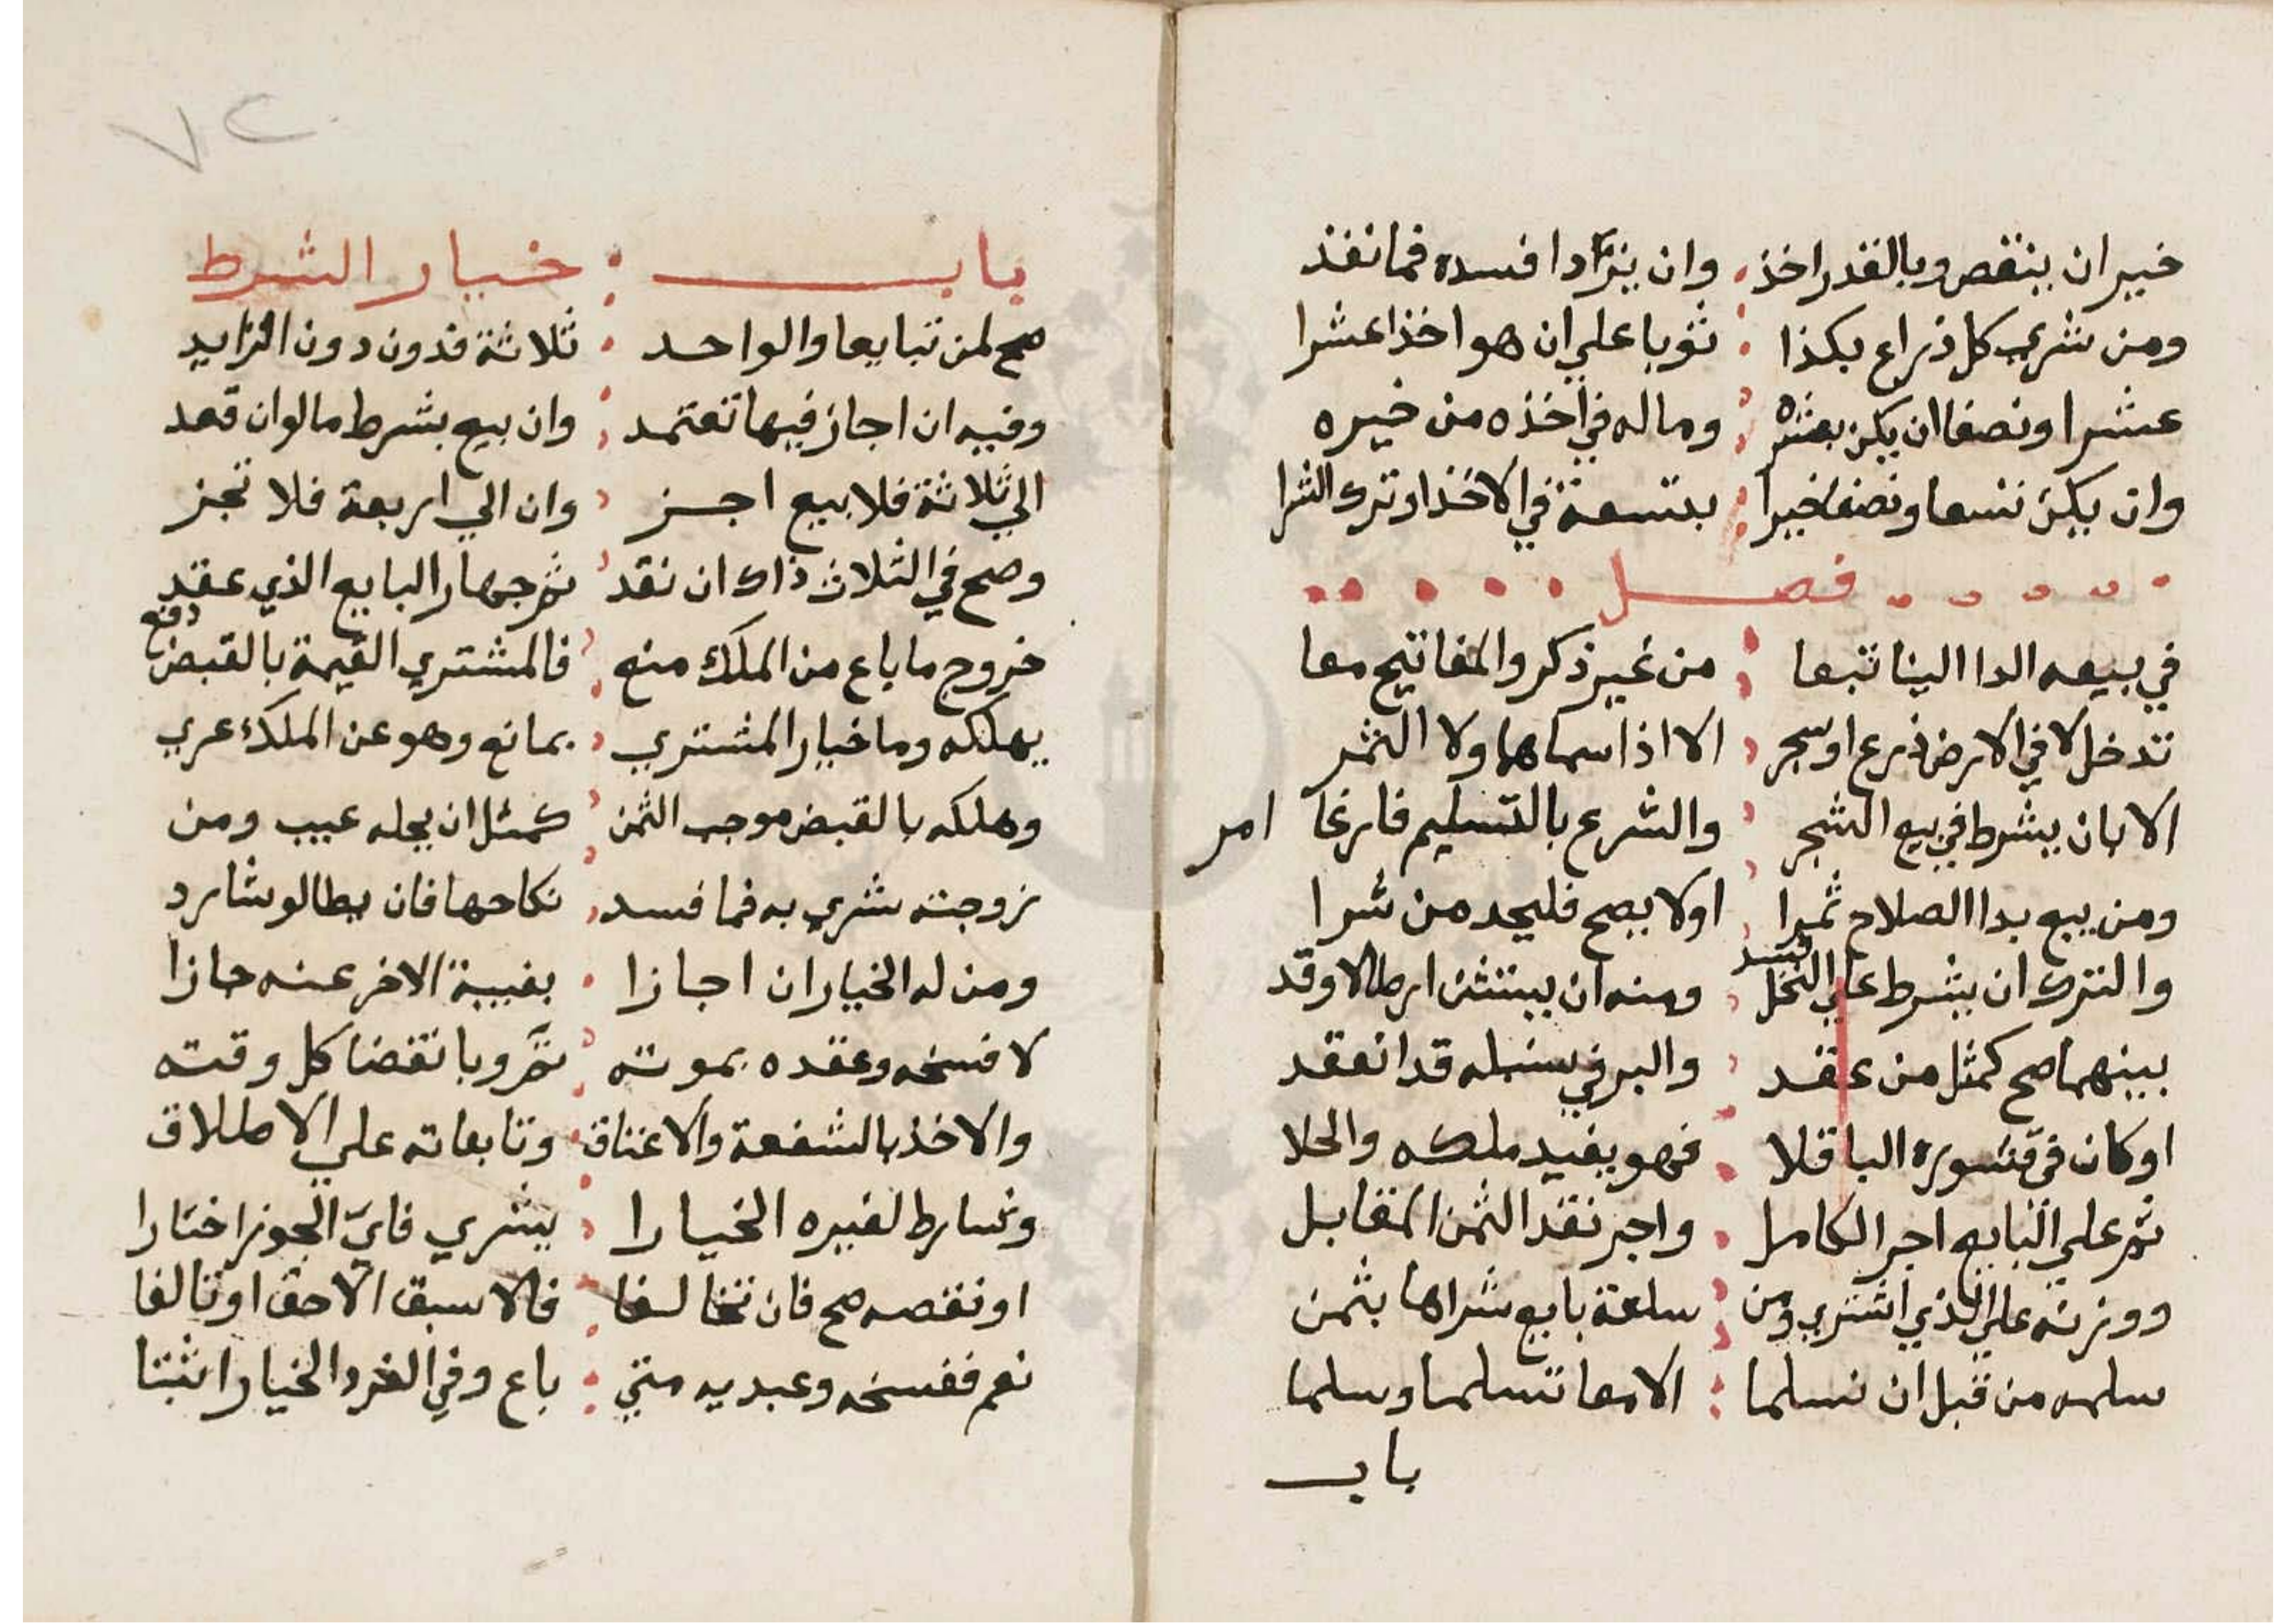 خير ان ينقص وبالقدر اخذ وان يزاد افسده فما نفذ
ومن شري كل ذراع بكذا ثوبا علي ان هو اخذا عشرا
عشرا ونصفا ان يكن بعشره وماله في اخذه من خيره
وان يكن تسعا ونصفا خيرا بتسعة في الاخذ او ترك الشرا
فصل
في بيعه الدا البنا تبعا من غير ذكر والمفاتيح معا
تدخل لا في الارض زرع او شجر الا اذا سماها ولا الثمر
الا بان يشرط في بيع الشجر والشرع بالتسليم فارغا امر
ومن يبع بدا الصلاح ثمرا اولا يصح فليجد من شرا
والترك ان يشرط علي النخل فسد ومنه ان يستثن ارطالا وقد
بينهما صح كمثل من عقد والبر في سنبله قد انعقد
او كان في قشوره الباقلا فهو يفيد ملكه والحلا
ثم علي البايع اجر الكامل واجر نقد الثمن المقابل
ووزنه علي الذي اشتري ومن سلعة بايع شراها بثمن
سلمه من قبل ان تسلما الا معا تسلما وسلما
باب
٧٢
باب خيار الشرط
صح لمن تبايعا والواحد ثلاثة فدون دون الزايد
وفيه ان اجاز فيها تعتمد وان بيع بشرط ما لو ان قعد
الي ثلاثة فلا بيع اجز وان الي اربعة فلا تجز
وصح في الثلاث ذاك ان نقد ثم جهار البايع الذي عقد
خروج ما باع من الملك منع فالمشتري القيمة بالقبض دفع
يهلكه وما خيار المشتري بمانع وهو عن الملك عري
وهلكه بالقبض موجب الثمن كمثل ان يحله عيب ومن
زوجته شري به فما فسد نكاحها فان يطا لو شا رد
ومن له الخيار ان اجازا بغيبة الاخر عنه جازا
لا فسخه وعقده بموته تم وبانقضا كل وقته
والاخذ بالشفعة والاعتاق وتابعاته علي الاطلاق
وشارط لغيره الخيارا يشري فاي الجوز اختارا
او نقصه صح فان تخالفا فالاسبق الاحق او تالفا
نعم ففسخه وعبديه متي باع وفي الفرد الخيار اثبتا